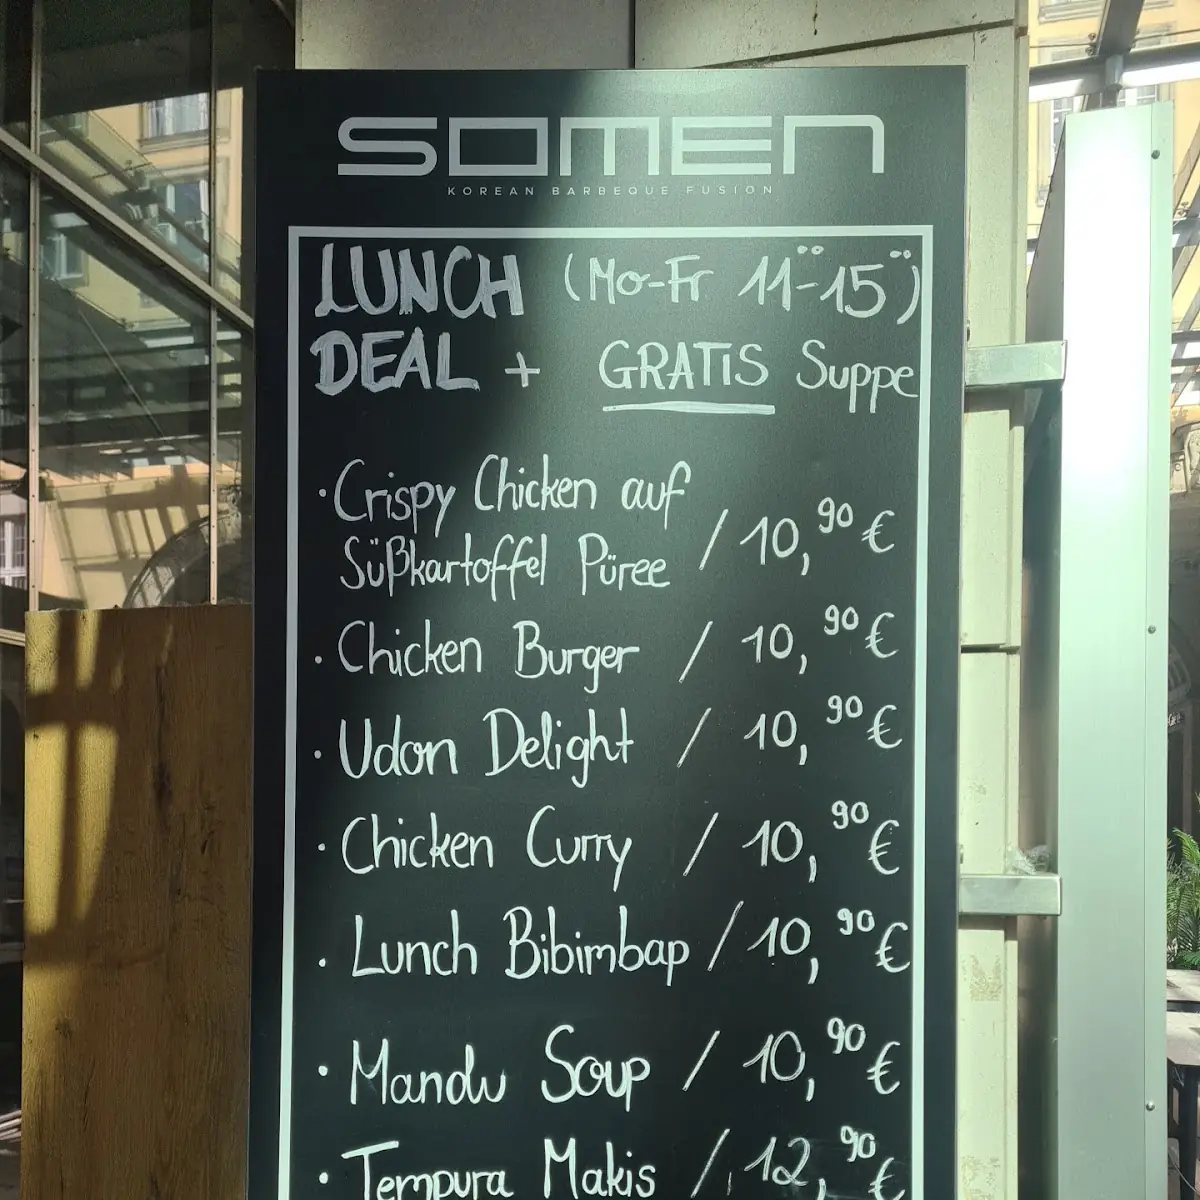 SOMEN
KOREAN BARBEQUE FUSION
LUNCH (Mo-Fr 11°°-15°°)
DEAL + GRATIS Suppe
· Crispy Chicken auf
Süßkartoffel Püree / 10,90 €
· Chicken Burger / 10,90 €
· Udon Delight / 10,90 €
· Chicken Curry / 10,90 €
· Lunch Bibimbap / 10,90 €
· Mandu Soup / 10,90 €
· Tempura Makis / 12,90 €